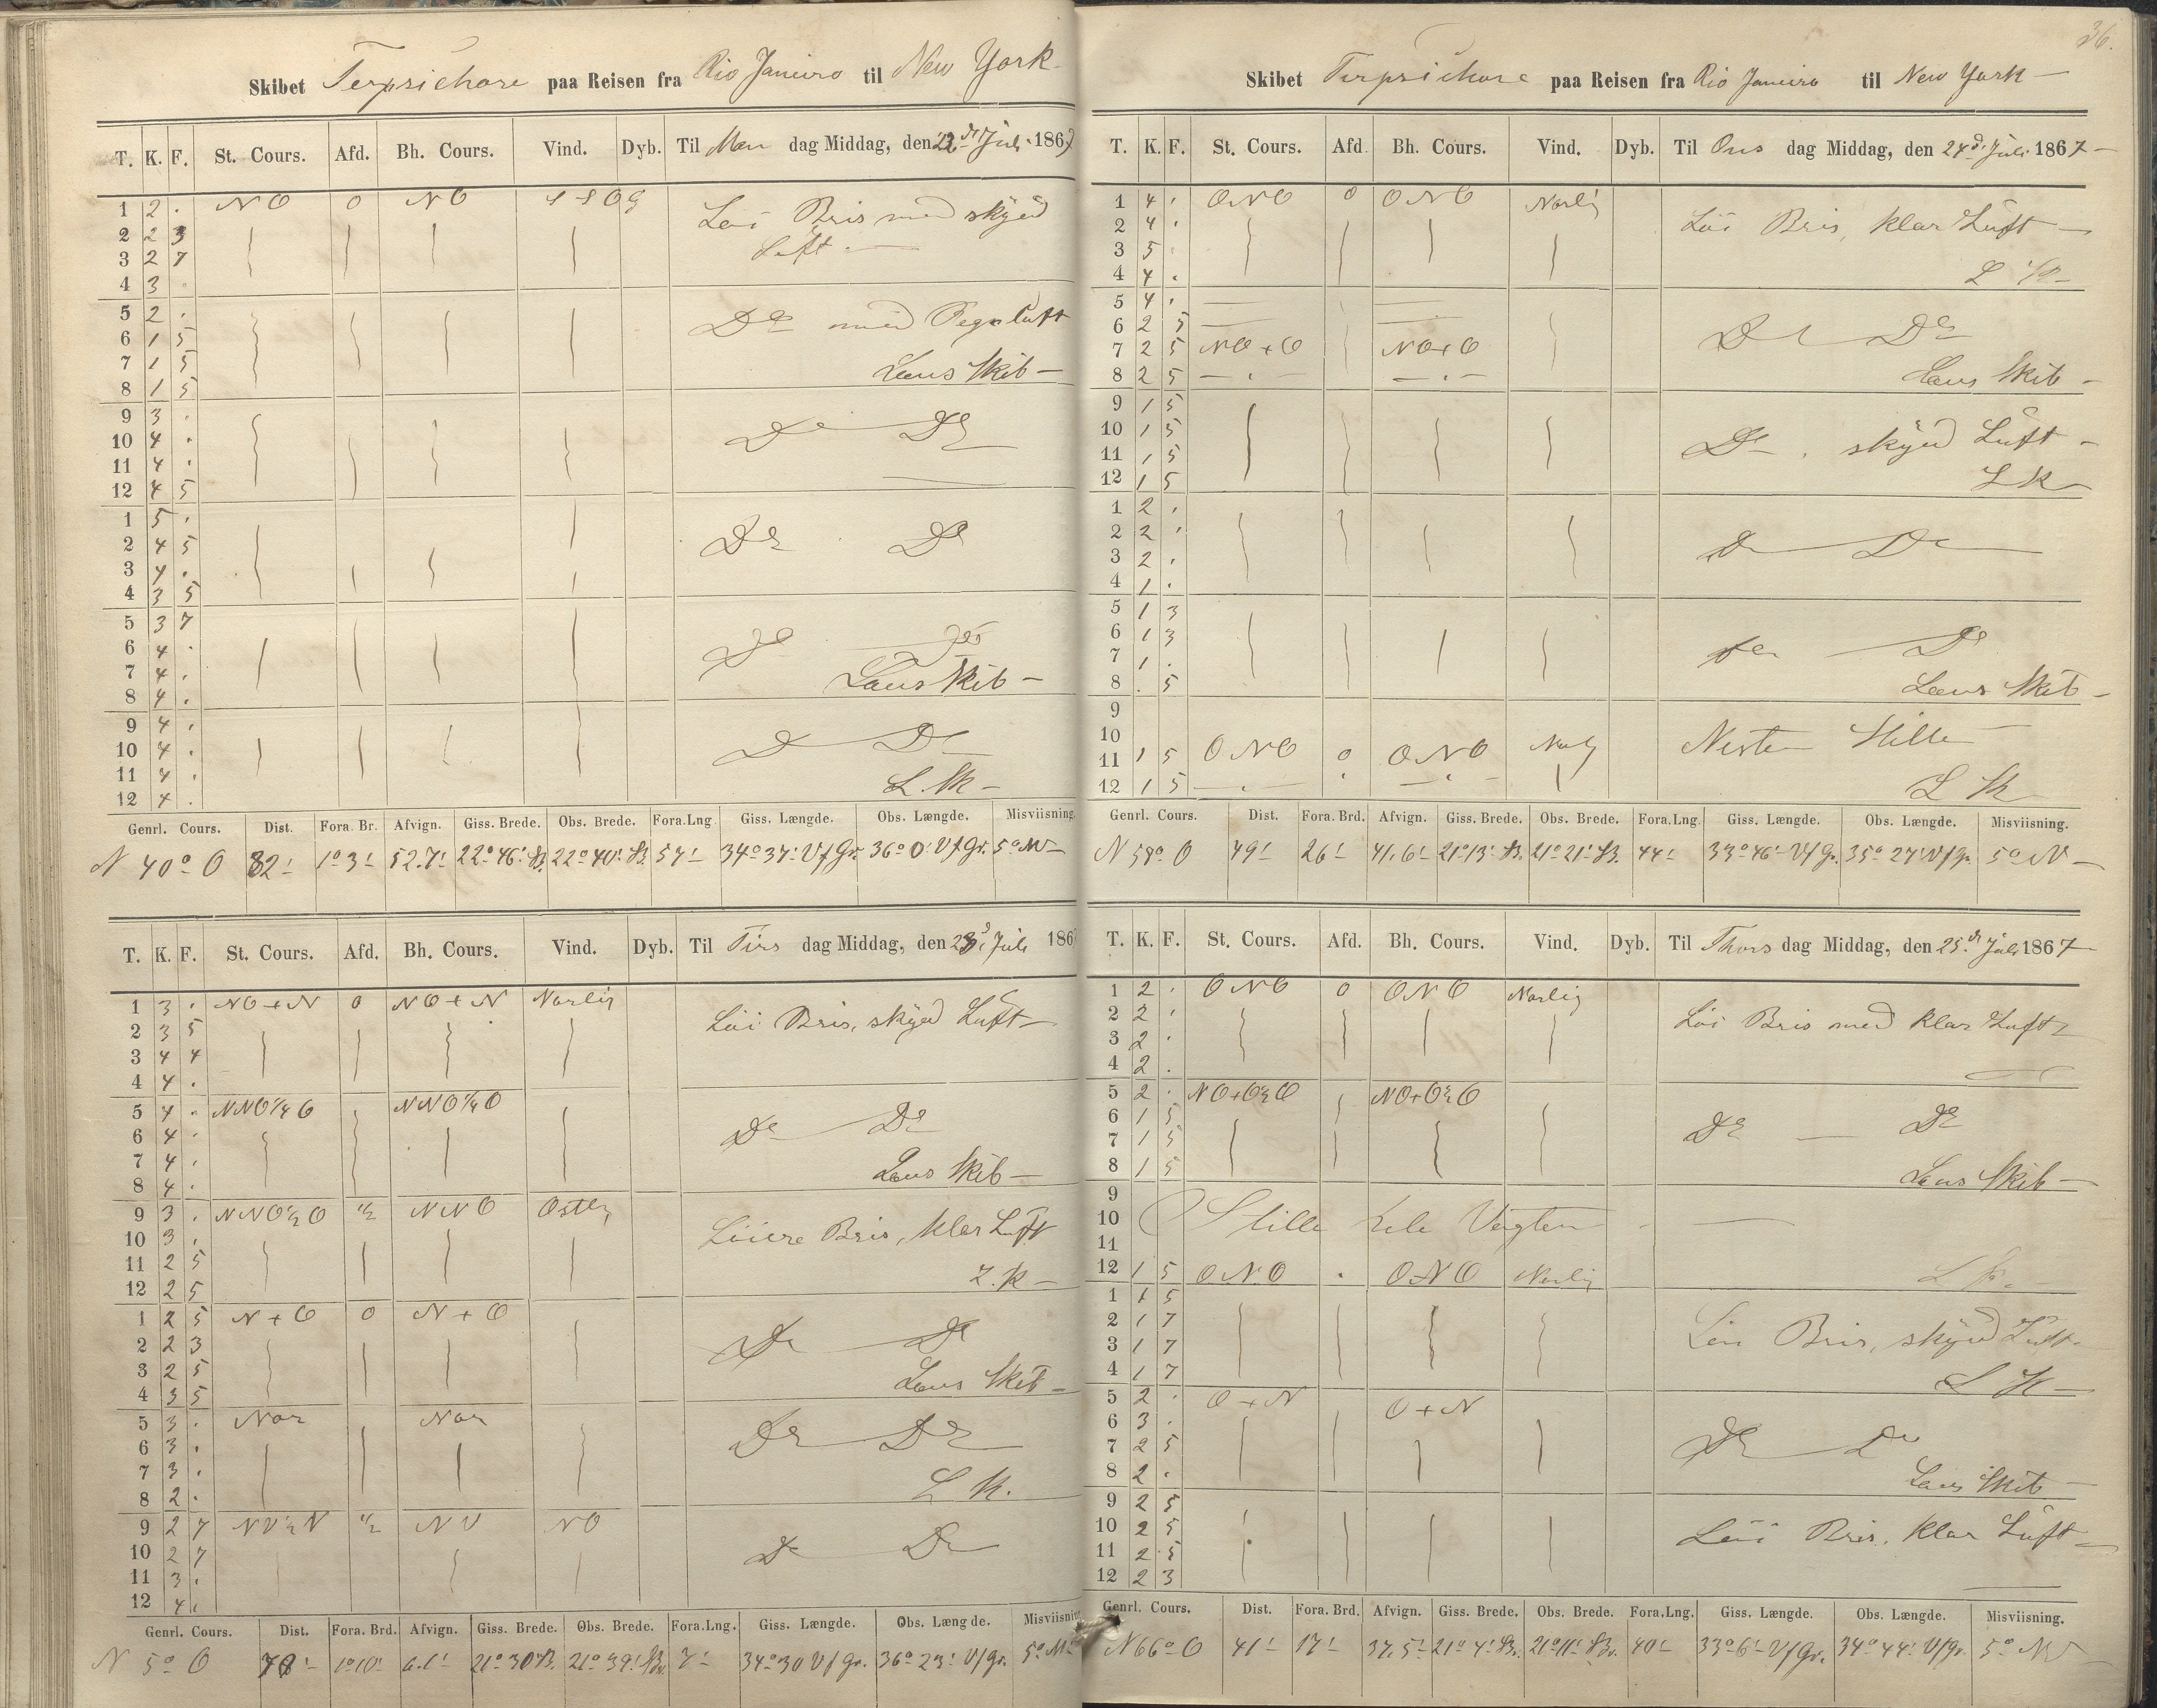 Skibet Terpsichore paa Reisen fra Rio Janeiro til New York
T. K. F. St. Cours. Afd. Bh. Cours. Vind. Dyb. Til Man dag Middag, den 22de Juli 1867
1 2 . NO 0 NO SSO Löi Bris med skyed
2 2 3 Luft
3 2 7
4 3 .
5 2 . Do med Regnluft
6 1 5
7 1 5 Læns Skib
8 1 5
9 3 .
10 4 . Do Do
11 4 .
12 4 5
1 5 .
2 4 5 Do Do
3 4 .
4 3 5
5 3 7
6 4 . Do Do
7 4 . Læns Skib
8 4 .
9 4 .
10 4 . Do Do
11 4 . L. Sk
12 4 .
Genrl. Cours. Dist. Fora. Br. Afvign. Giss. Brede. Obs. Brede. Fora.Lng. Giss. Længde. Obs. Længde. Misviisning.
N 40° O 82' 1°3' 52.7' 22°46' S.B. 22°40' S.B. 57' 34°37' V f Gr. 36°0' V f Gr. 5° NV
T. K. F. St. Cours. Afd. Bh. Cours. Vind. Dyb. Til Tirs dag Middag, den 23d Juli 186
1 3 . NO+N 0 NO+N Norlig
2 3 5 Löi Bris, skyed Luft
3 4 4
4 4 .
5 4 . NNO¼O NNO¼O
6 4 . Do Do
7 4 .
8 4 . Læns Skib
9 3 . NNO½O ½ NNO Ostlig
10 3 . Löiere Bris, klar Luft
11 2 5
12 2 5 L. K
1 2 5 N+O 0 N+O
2 2 3 Do Do
3 2 5
4 3 5 Læns Skib
5 3 . Nor Nor
6 3 . Do Do
7 3 .
8 2 . L K.
9 2 7 NV½N ½ NV NO
10 2 7 Do Do
11 3 .
12 4 .
Genrl. Cours. Dist. Fora. Brd. Afvign. Giss. Brede. Obs. Brede. Fora.Lng. Giss. Længde. Obs. Længde. Misviisning
N 5° O 70' 1°10' 6.1' 21°30' S.B. 21°39' S.B. 7' 34°30 V f Gr. 36°23' V f Gr. 5° NV
36.
Skibet Terpsichore paa Reisen fra Rio Janeiro til New York
T. K. F. St. Cours. Afd Bh. Cours. Vind. Dyb. Til Ons dag Middag, den 24d Juli 1867
1 4 . ONO 0 ONO Norlig
2 4 . Löi Bris, klar Luft
3 5 .
4 4 . L Sk
5 4 .
6 2 5 Do Do
7 2 5 NO+O NO+O
8 2 5 Læns Skib
9 1 5
10 1 5 Do. skyed Luft
11 1 5
12 1 5 L K
1 2 .
2 2 .
3 2 . Do Do
4 1 .
5 1 3
6 1 3 Do Do
7 1 .
8 . 5 Læns Skib
9
10 Nesten Stille
11 1 5 ONO 0 ONO Norlig
12 1 5 L Sk
Genrl. Cours. Dist. Fora. Brd. Afvign. Giss. Brede. Obs. Brede. Fora.Lng. Giss. Længde. Obs. Længde. Misviisning.
N 58° O 49' 26' 41.6' 21°13' S.B. 21°21' S.B. 44' 33°46' V f Gr. 35°27' V f Gr. 5° NV
T. K. F. St. Cours. Afd. Bh. Cours. Vind. Dyb. Til Thors dag Middag, den 25de Juli 1867
1 2 . ONO 0 ONO Norlig
2 2 . Löi Bris med klar Luft
3 2 .
4 2 .
5 2 . NO+O½O NO+O½O
6 1 5 Do Do
7 1 5
8 1 5 Læns Skib
9
10 Stille hele Vagten
11
12 1 5 ONO . ONO Norlig L K.
1 1 5
2 1 7 Löi Bris, skyed Luft
3 1 7
4 1 7 L K
5 2 . O+N O+N
6 3 . Do Do
7 2 5
8 2 . Læns Skib
9 2 5
10 2 5 Löi Bris, klar Luft
11 2 5
12 2 3
Genrl. Cours. Dist. Fora. Brd. Afvign. Giss. Brede. Obs. Brede. Fora.Lng. Giss. Længde. Obs. Længde. Misviisning.
N 66° O 41' 17' 37.5' 21°4' S.B. 21°11' S.B. 40' 33°6' V f Gr. 34°44' V f Gr. 5° NV